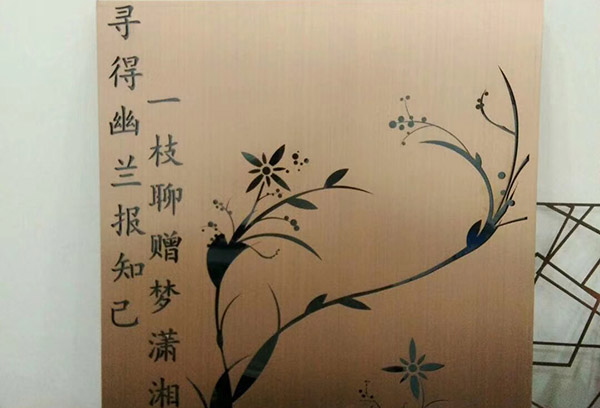 寻得幽兰报知己
一枝聊赠梦潇湘